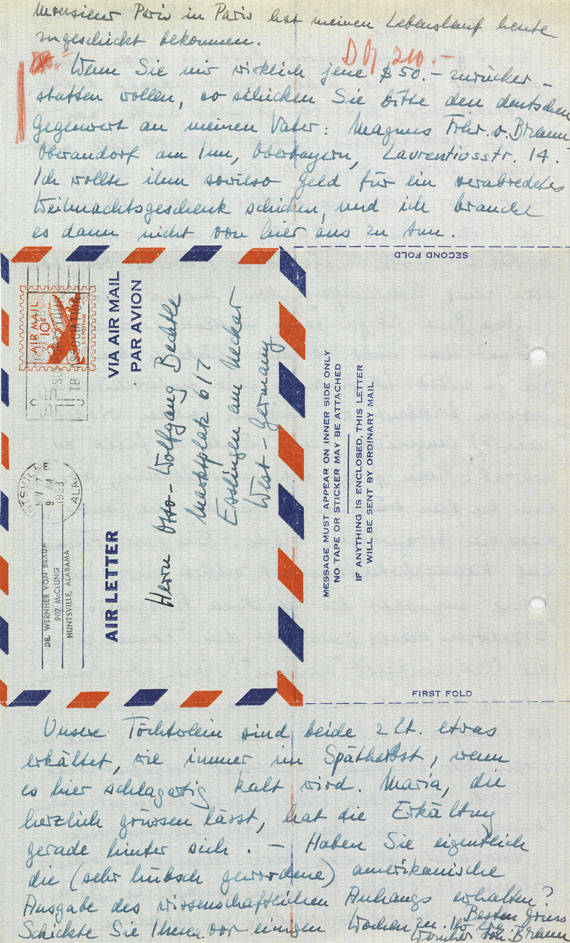 Monsieur Paris in Paris hat meinen Lebenslauf heute
zugeschickt bekommen.
DM 210.-
Wenn Sie mir wirklich jene $50.- zurücker-
statten wollen, so schicken Sie bitte den deutschen
Gegenwert an meinen Vater: Magnus Frhr. v. Braun
Oberaudorf am Inn, Oberbayern, Laurentiusstr. 14.
Ich wollte ihm sowieso Geld für ein verabredetes
Weihnachtsgeschenk schicken, und ich brauche
es dann nicht von hier aus zu tun.
SECOND FOLD
AIR MAIL
10¢
VIA AIR MAIL
PAR AVION
Herrn Otto-Wolfgang Bechtle
Marktplatz 617
Esslingen am Neckar
West-Germany
NOV 7
9 AM
1953
ALA.
DR. WERNHER VON BRAUN
907 McCLUNG
HUNTSVILLE, ALABAMA
AIR LETTER
MESSAGE MUST APPEAR ON INNER SIDE ONLY
NO TAPE OR STICKER MAY BE ATTACHED
IF ANYTHING IS ENCLOSED, THIS LETTER
WILL BE SENT BY ORDINARY MAIL
FIRST FOLD
Unsere Töchterlein sind beide z.Zt. etwas
erkältet, wie immer im Spätherbst, wenn
es hier schlagartig kalt wird. Maria, die
herzlich grüssen lässt, hat die Erkältung
gerade hinter sich. - Haben Sie eigentlich
die (sehr hübsch gewordene) amerikanische
Ausgabe des wissenschaftlichen Anhangs erhalten?
Schickte Sie Ihnen vor einigen Wochen zu.
Besten Gruss
Ihr
Wernher von Braun